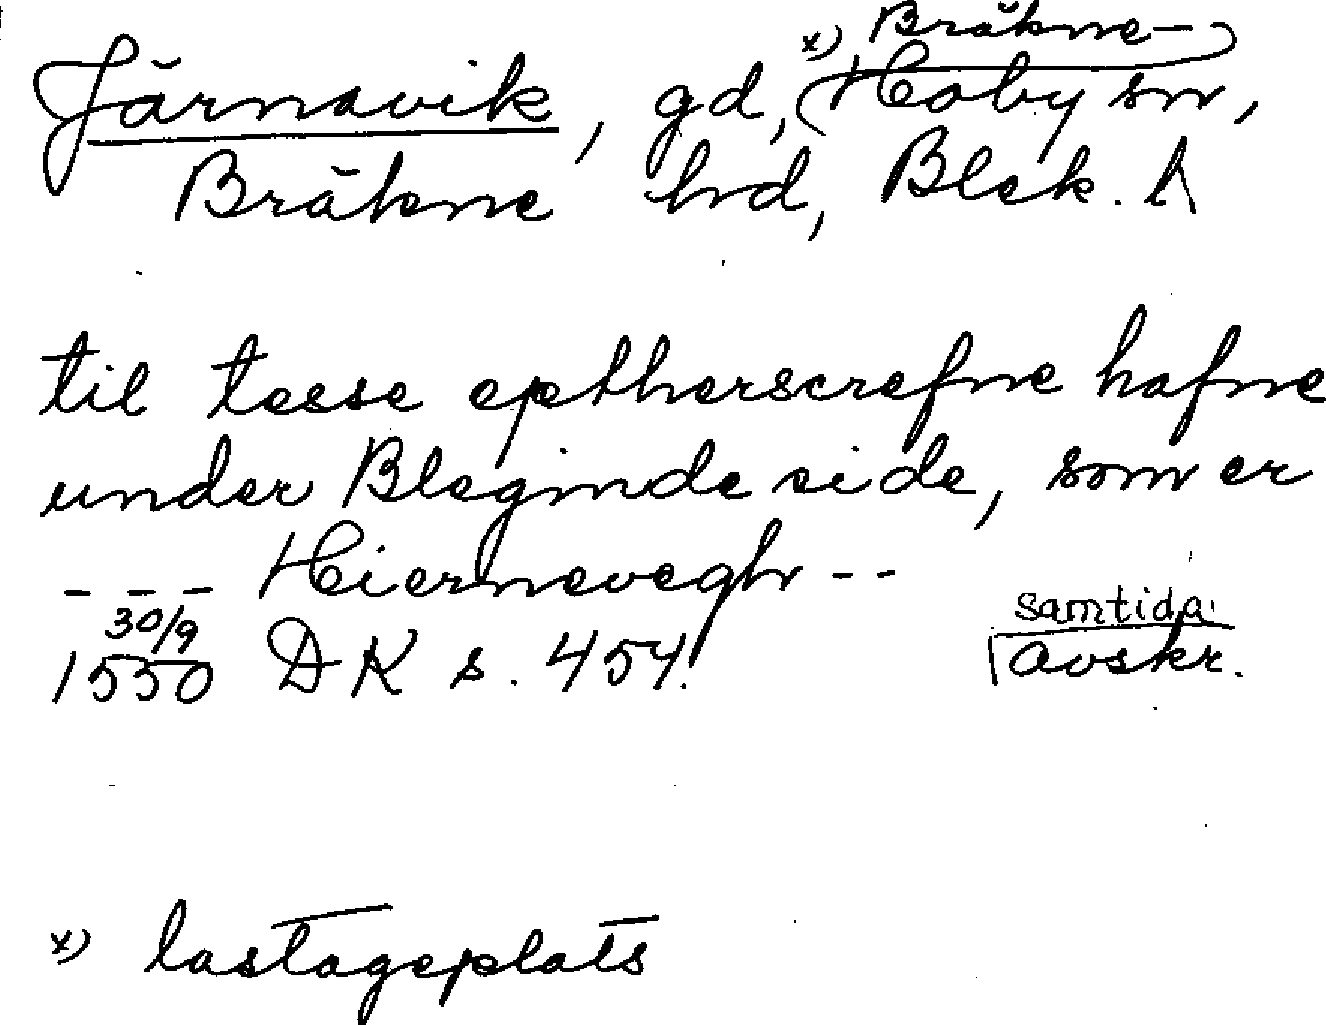 x) Bräkne-
Järnavik, gd, Hoby sn,
Bräkne hd, Blek. l
til tesse eptherscrefne hafne
under Blegindeside, som er
– – – Hiernevegh – –
30/9
1550 DK s. 454.
samtida
avskr.
x) lastageplats